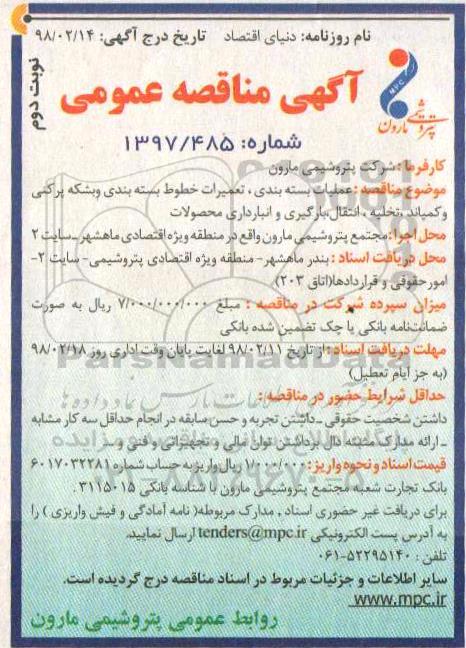 نام روزنامه: دنیای اقتصاد    تاریخ درج آگهی: ۹۸/۰۲/۱۴
نوبت دوم
MPC
پتروشیمی مارون
آگهی مناقصه عمومی
شماره: ۱۳۹۷/۴۸۵
کارفرما: شرکت پتروشیمی مارون
موضوع مناقصه: عملیات بسته بندی، تعمیرات خطوط بسته بندی وبشکه پرکنی
وکمپاند،تخلیه، انتقال،بارگیری و انبارداری محصولات
محل اجرا: مجتمع پتروشیمی مارون واقع در منطقه ویژه اقتصادی ماهشهر_سایت ۲
محل دریافت اسناد: بندر ماهشهر- منطقه ویژه اقتصادی پتروشیمی- سایت ۲-
امور حقوقی و قراردادها(اتاق ۲۰۳)
میزان سپرده شرکت در مناقصه: مبلغ ۷/۰۰۰/۰۰۰/۰۰۰ ریال به صورت
ضمانت‌نامه بانکی یا چک تضمین شده بانکی
مهلت دریافت اسناد: از تاریخ ۹۸/۰۲/۱۱ لغایت پایان وقت اداری روز ۹۸/۰۲/۱۸
(به جز ایام تعطیل)
حداقل شرایط حضور در مناقصه:
داشتن شخصیت حقوقی_داشتن تجربه و حسن سابقه در انجام حداقل سه کار مشابه
_ارائه مدارک مثبته دال برداشتن توان مالی و تجهیزاتی و فنی و ...
قیمت اسناد و نحوه واریز: ۱/۰۰۰/۰۰۰ ریال واریز به حساب شماره ۶۰۱۷۰۳۲۲۸۱
بانک تجارت شعبه مجتمع پتروشیمی مارون با شناسه بانکی ۳۱۱۵۰۱۵
برای دریافت غیر حضوری اسناد، مدارک مربوطه( نامه آمادگی و فیش واریزی) را
به آدرس پست الکترونیکی tenders@mpc.ir ارسال نمایید.
تلفن: ۵۲۲۹۵۱۴۰-۰۶۱
سایر اطلاعات و جزئیات مربوط در اسناد مناقصه درج گردیده است.
www.mpc.ir
روابط عمومی پتروشیمی مارون